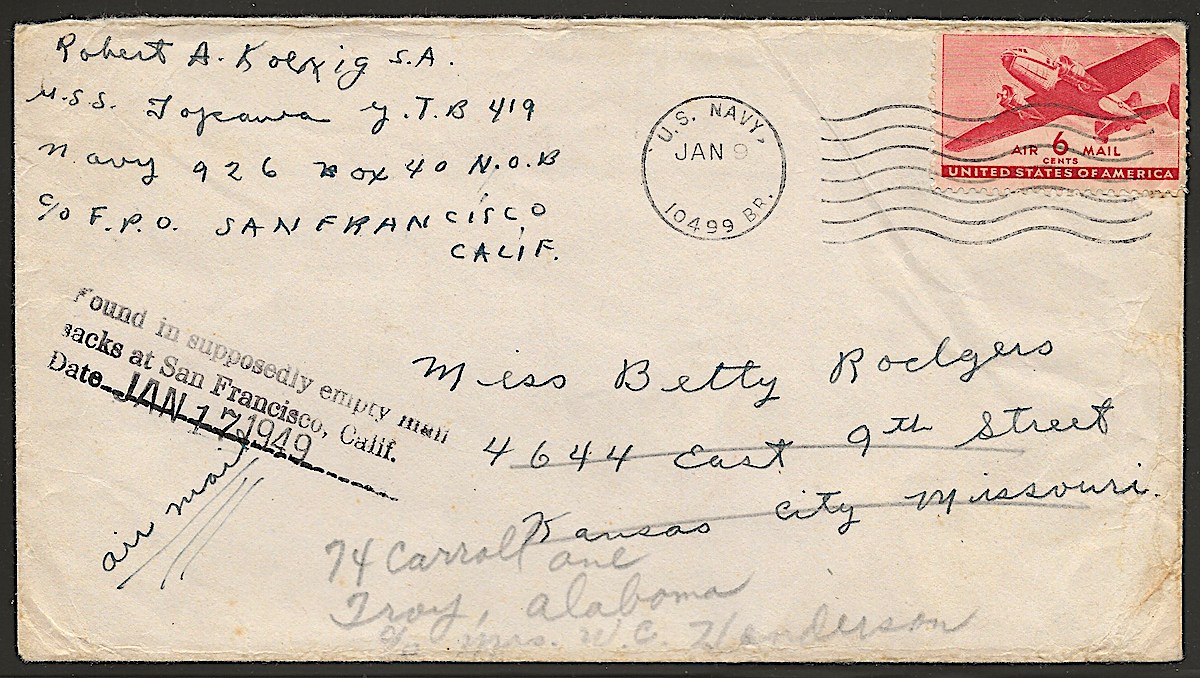 Robert A. Koenig S.A.
U.S.S. Topawa Y.T.B 419
Navy 926 Box 40 N.O.B
c/o F.P.O. SAN FRANCISCO
CALIF.
U.S. NAVY
JAN 9
10499 BR.
AIR 6 MAIL
CENTS
UNITED STATES OF AMERICA
Found in supposedly empty mail
sacks at San Francisco, Calif.
Date JAN 17 1949
air mail
Miss Betty Rodgers
4644 East 9th Street
Kansas City Missouri.
74 Carroll ave
Troy, Alabama
c/o Mrs. W.C. Henderson